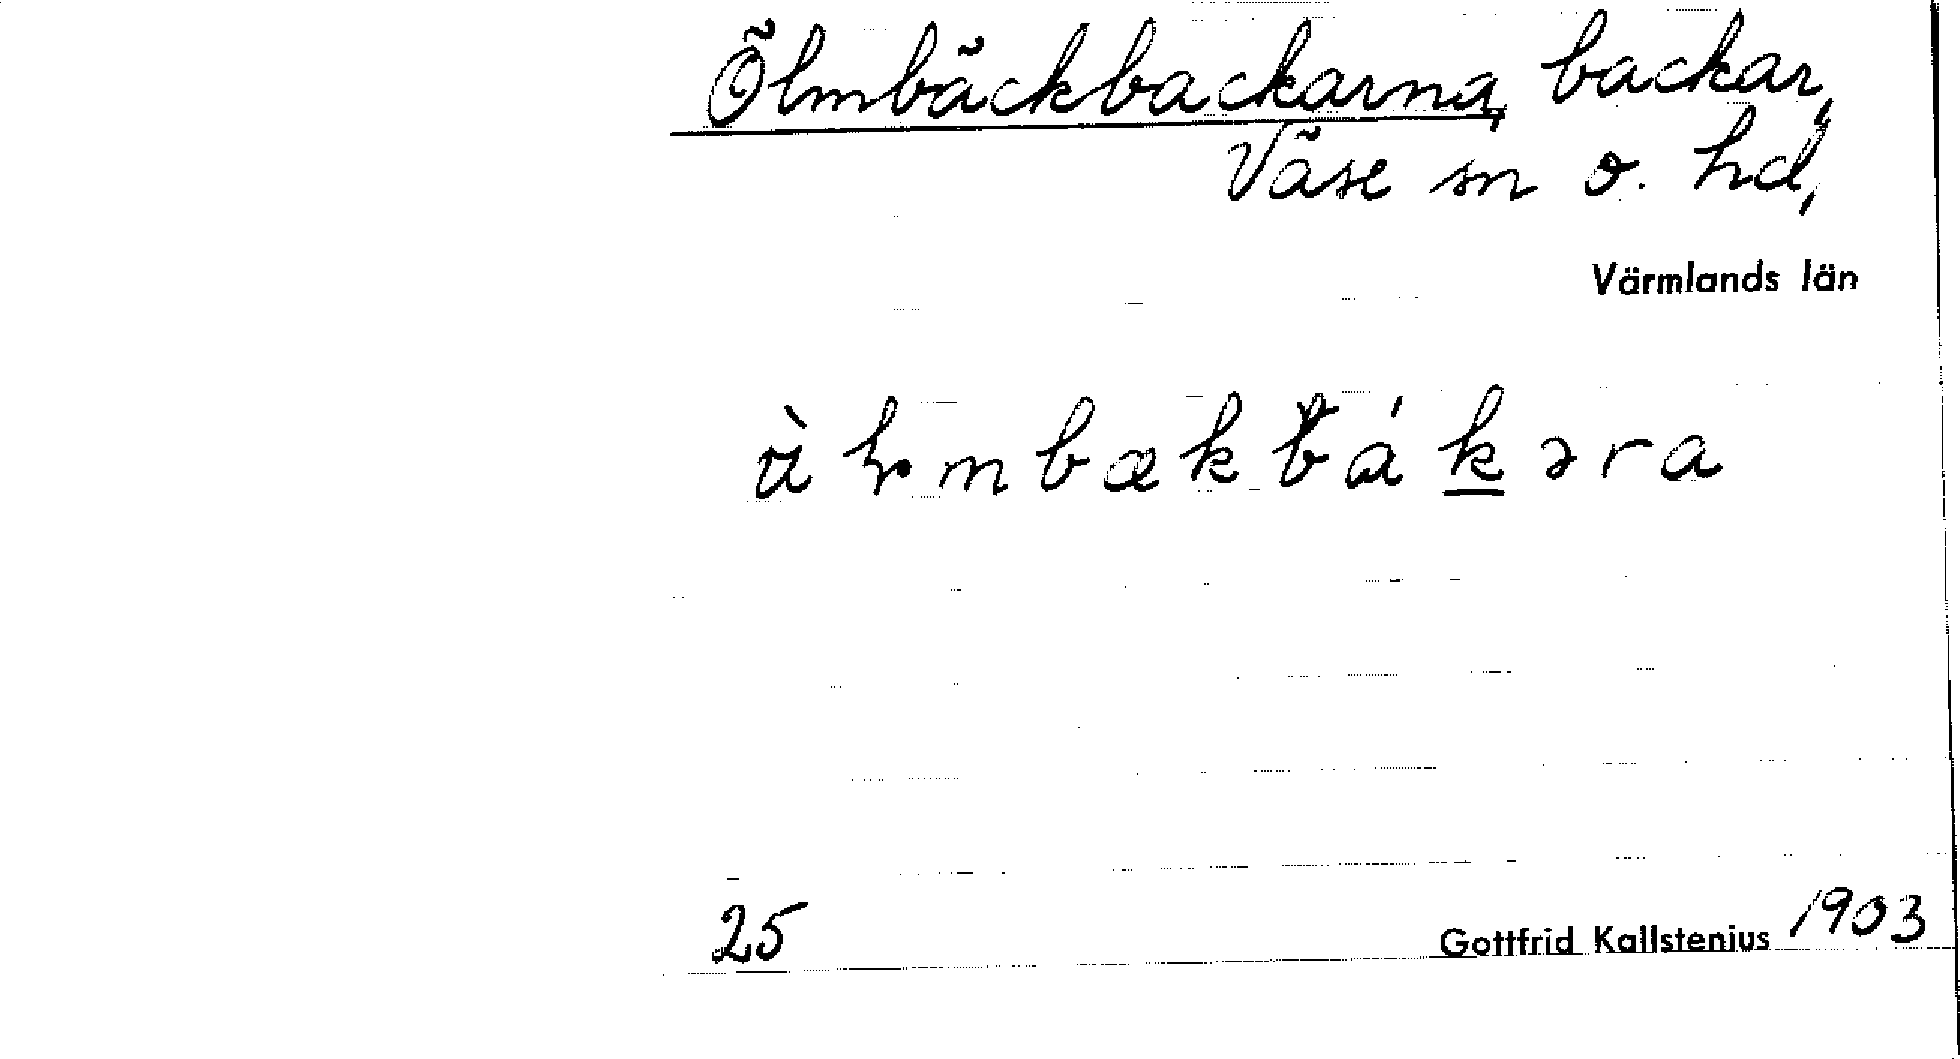 Ölmbäckbackarna, backar,
Väse sn o. hd,
Värmlands län
25
Gottfrid Kallstenius 1903